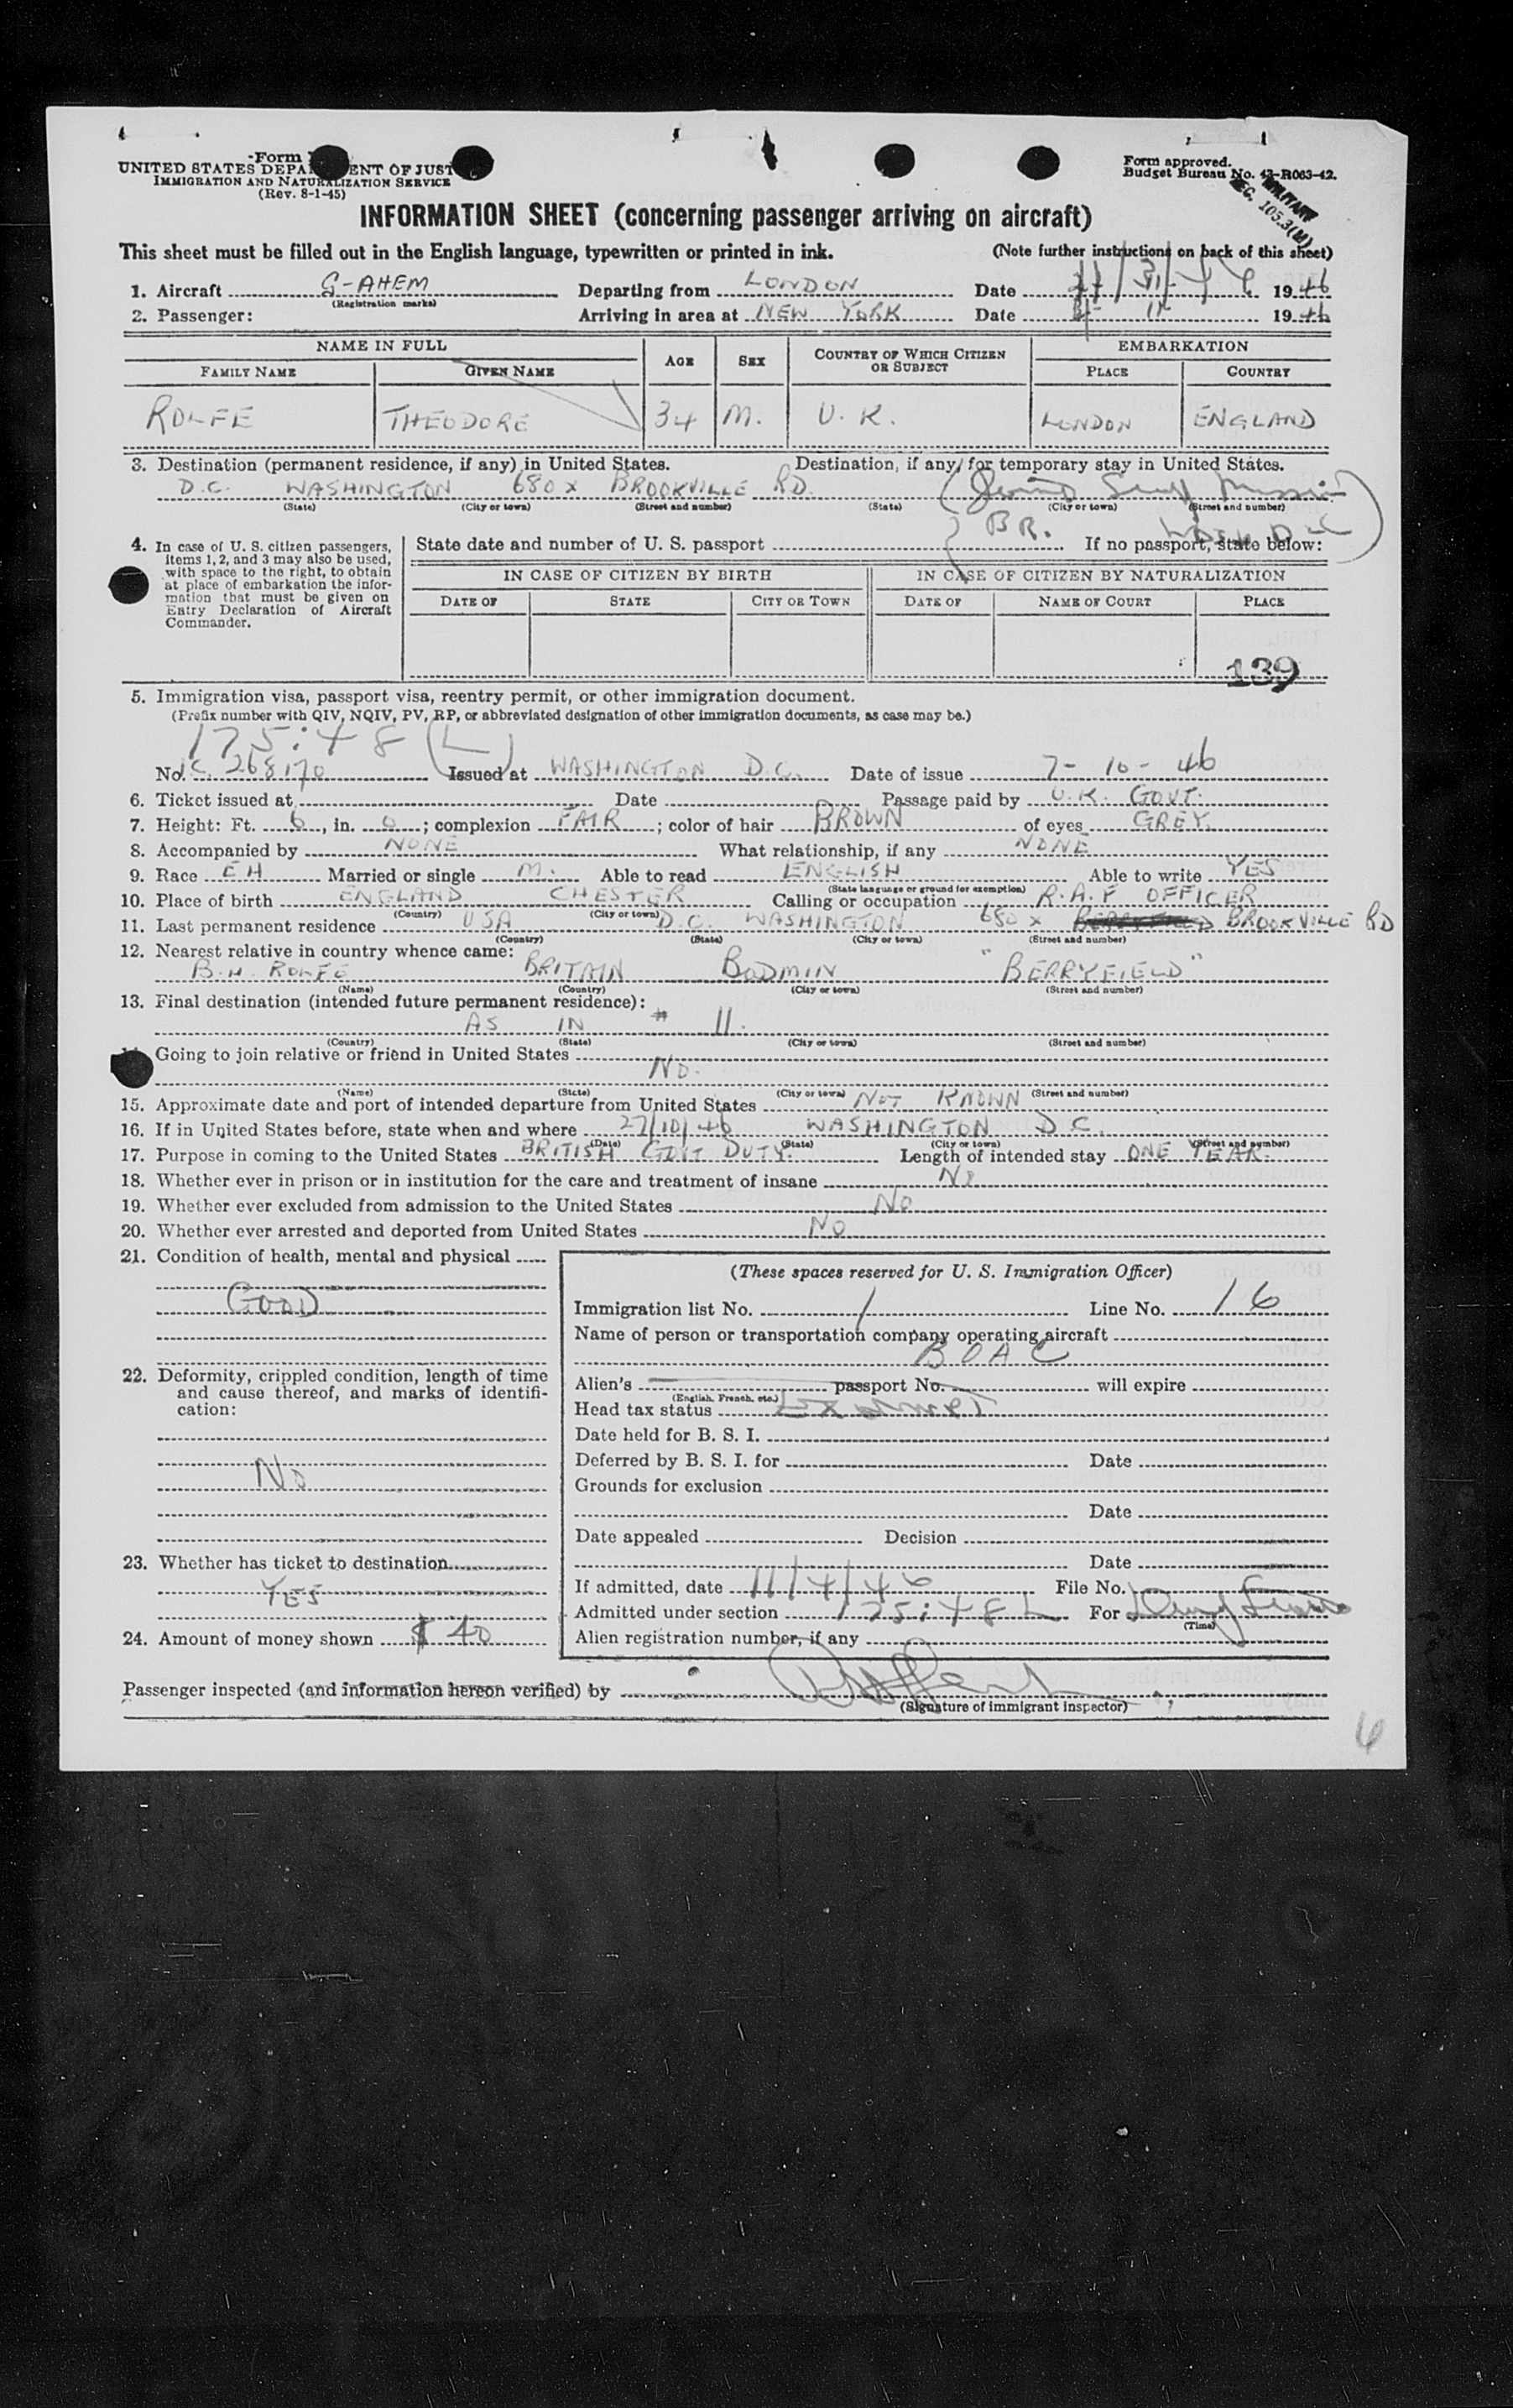 Form
UNITED STATES DEPA ENT OF JUST
IMMIGRATION AND NATURALIZATION SERVICE
(Rev. 8-1-45)
Form approved.
Budget Bureau No. 43-R063-42.
MILITARY
SEC. 105.3(M)
INFORMATION SHEET (concerning passenger arriving on aircraft)
This sheet must be filled out in the English language, typewritten or printed in ink. (Note further instructions on back of this sheet)
1. Aircraft G-AHEM Departing from LONDON Date 1946
(Registration marks)
2. Passenger: Arriving in area at NEW YORK Date 1946
NAME IN FULL AGE SEX COUNTRY OF WHICH CITIZEN OR SUBJECT EMBARKATION
FAMILY NAME GIVEN NAME PLACE COUNTRY
ROLFE THEODORE 34 M. U.K. LONDON ENGLAND
3. Destination (permanent residence, if any) in United States. Destination, if any, for temporary stay in United States.
D.C. WASHINGTON 680x BROOKVILLE RD.
(State) (City or town) (Street and number) (State) (City or town) (Street and number)
BR. Wash D C
4. In case of U. S. citizen passengers, items 1, 2, and 3 may also be used, with space to the right, to obtain at place of embarkation the information that must be given on Entry Declaration of Aircraft Commander.
State date and number of U. S. passport If no passport, state below:
IN CASE OF CITIZEN BY BIRTH IN CASE OF CITIZEN BY NATURALIZATION
DATE OF STATE CITY OR TOWN DATE OF NAME OF COURT PLACE
139
5. Immigration visa, passport visa, reentry permit, or other immigration document.
(Prefix number with QIV, NQIV, PV, RP, or abbreviated designation of other immigration documents, as case may be.)
175:48 (L)
No. C. 268170 Issued at WASHINGTON D.C. Date of issue 7-10-46
6. Ticket issued at Date Passage paid by U.K. GOVT.
7. Height: Ft. 6, in. 0; complexion FAIR; color of hair BROWN of eyes GREY.
8. Accompanied by NONE What relationship, if any NONE
9. Race EH Married or single M. Able to read ENGLISH Able to write YES
(State language or ground for exemption)
10. Place of birth ENGLAND CHESTER Calling or occupation R.A.F OFFICER
(Country) (City or town)
11. Last permanent residence USA D.C. WASHINGTON 680x BROOKVILLE RD
(Country) (State) (City or town) (Street and number)
12. Nearest relative in country whence came:
B.H. ROLFE BRITAIN BODMIN "BERRYFIELD"
(Name) (Country) (City or town) (Street and number)
13. Final destination (intended future permanent residence):
AS IN # 11.
(Country) (State) (City or town) (Street and number)
Going to join relative or friend in United States
NO.
(Name) (State) (City or town) (Street and number)
15. Approximate date and port of intended departure from United States NOT KNOWN
16. If in United States before, state when and where 27/10/46 WASHINGTON D C.
(Date) (State) (City or town) (Street and number)
17. Purpose in coming to the United States BRITISH GOVT DUTY. Length of intended stay ONE YEAR.
18. Whether ever in prison or in institution for the care and treatment of insane NO
19. Whether ever excluded from admission to the United States NO
20. Whether ever arrested and deported from United States NO
21. Condition of health, mental and physical
GOOD
22. Deformity, crippled condition, length of time and cause thereof, and marks of identification:
NO
23. Whether has ticket to destination
YES
24. Amount of money shown $ 40
(These spaces reserved for U. S. Immigration Officer)
Immigration list No. 1 Line No. 16
Name of person or transportation company operating aircraft
BOAC
Alien's passport No. will expire
(English, French, etc.)
Head tax status Exempt
Date held for B. S. I.
Deferred by B. S. I. for Date
Grounds for exclusion
Date
Date appealed Decision
Date
If admitted, date 11/4/46 File No.
Admitted under section 175:48 L For
(Time)
Alien registration number, if any
Passenger inspected (and information hereon verified) by
(Signature of immigrant inspector)
6